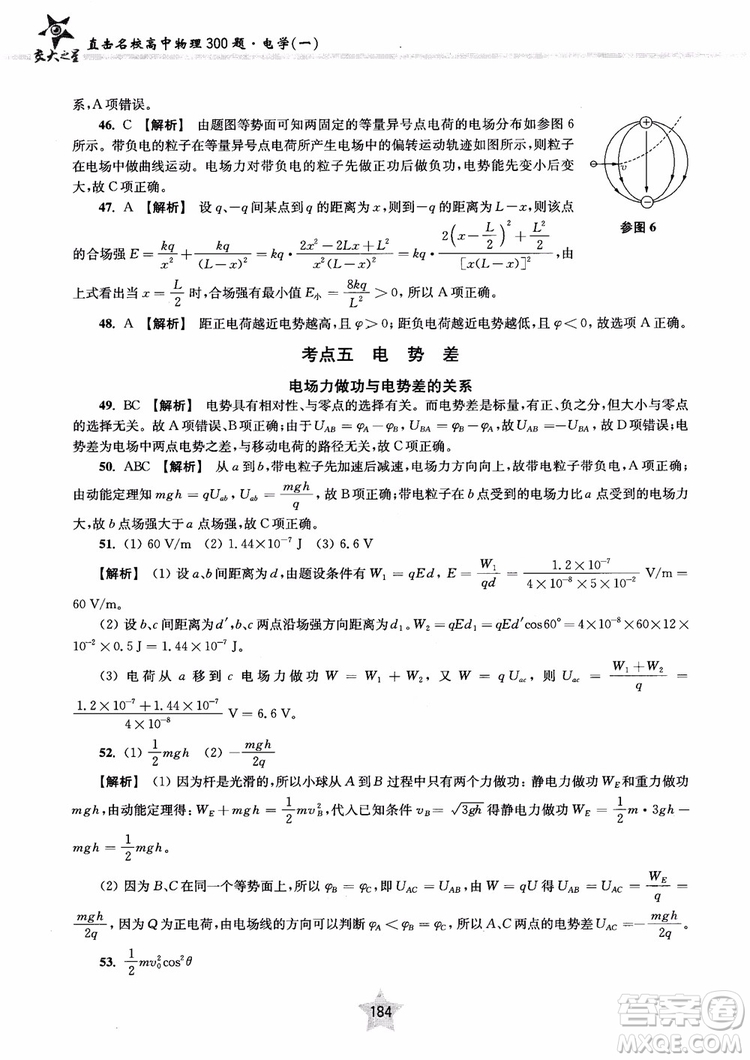 交大之星
直击名校高中物理300题·电学(一)
系,A项错误。
46. C 【解析】 由题图等势面可知两固定的等量异号点电荷的电场分布如参图6
所示。带负电的粒子在等量异号点电荷所产生电场中的偏转运动轨迹如图所示,则粒
子在电场中做曲线运动。电场力对带负电的粒子先做正功后做负功,电势能先变小后变
大,故C项正确。
+
v
−
参图6
47. A 【解析】 设q、-q间某点到q的距离为x,则到-q的距离为L-x,则该点
的合场强E=kq/x²+kq/(L-x)²=kq·(2x²-2Lx+L²)/(x²(L-x)²)=kq·(2(x-L/2)²+L²/2)/[x(L-x)]²,由
上式看出当x=L/2时,合场强有最小值E小=8kq/L²>0,所以A项正确。
48. A 【解析】 距正电荷越近电势越高,且φ>0;距负电荷越近电势越低,且φ<0,故选项A正确。
考点五 电 势 差
电场力做功与电势差的关系
49. BC 【解析】 电势具有相对性、与零点的选择有关。而电势差是标量,有正、负之分,但大小与零点
的选择无关。故A项错误、B项正确;由于U_AB=φ_A-φ_B,U_BA=φ_B-φ_A,故U_AB=-U_BA,故D项错误;电
势差为电场中两点电势之差,与移动电荷的路径无关,故C项正确。
50. ABC 【解析】 从a到b,带电粒子先加速后减速,电场力方向向上,故带电粒子带负电,A项正确;
由动能定理知mgh=qU_ab,U_ab=mgh/q,故B项正确;带电粒子在b点受到的电场力比a点受到的电场力
大,故b点场强大于a点场强,故C项正确。
51. (1) 60 V/m (2) 1.44×10⁻⁷ J (3) 6.6 V
【解析】 (1) 设a、b间距离为d,由题设条件有W₁=qEd,E=W₁/qd=1.2×10⁻⁷/(4×10⁻⁸×5×10⁻²) V/m=
60 V/m。
(2) 设b、c间距离为d′,b、c两点沿场强方向距离为d₁。W₂=qEd₁=qEd′cos60°=4×10⁻⁸×60×12×
10⁻²×0.5 J=1.44×10⁻⁷ J。
(3) 电荷从a移到c电场力做功W=W₁+W₂,又W=qU_ac,则U_ac=(W₁+W₂)/q=
(1.2×10⁻⁷+1.44×10⁻⁷)/(4×10⁻⁸) V=6.6 V。
52. (1) 1/2 mgh (2) -mgh/2q
【解析】 (1) 因为杆是光滑的,所以小球从A到B过程中只有两个力做功:静电力做功W_E和重力做功
mgh,由动能定理得:W_E+mgh=1/2 mv_B²,代入已知条件v_B=√3gh得静电力做功W_E=1/2 m·3gh-
mgh=1/2 mgh。
(2) 因为B、C在同一个等势面上,所以φ_B=φ_C,即U_AC=U_AB,由W=qU得U_AC=U_AB=-W_E/q=
-mgh/2q,因为Q为正电荷,由电场线的方向可以判断φ_A<φ_B=φ_C,所以A、C两点的电势差U_AC=-mgh/2q。
53. 1/2 mv₀²cos²θ
184
答案圈
MXQE.COM